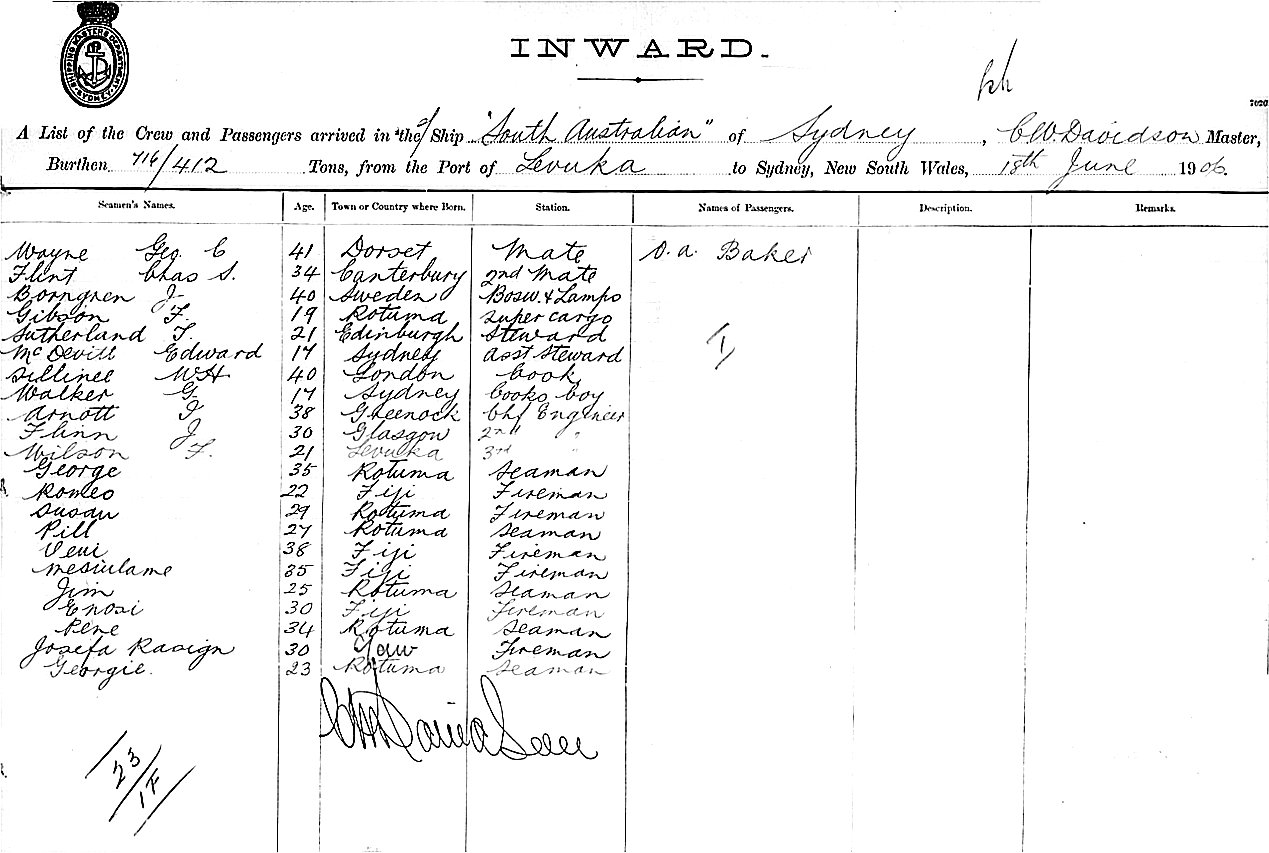 SHIPPING MASTERS DEPARTMENT SYDNEY
INWARD.
7020
A List of the Crew and Passengers arrived in the S/ Ship "South Australian" of Sydney, C.W. Davidson Master,
Burthen 716/412 Tons, from the Port of Levuka to Sydney, New South Wales, 18th June 1906
Seamen's Names. Age. Town or Country where Born. Station. Names of Passengers. Description. Remarks.
Wayne Geo. C 41 Dorset Mate O.a. Baker
Flint Chas S. 34 Canterbury 2nd Mate
Borngren J 40 Sweden Bosw. & Lamps
Gibson F. 19 Rotuma Super cargo
Sutherland T. 21 Edinburgh Steward
McDevitt Edward 17 Sydney Asst Steward
1/
Sillinee WH 40 London Cook
Walker G 17 Sydney Cooks boy
Arnott J 38 Greenock Chf Engineer
Flinn J 30 Glasgow 2nd "
Wilson F. 21 Levuka 3rd "
George 35 Rotuma Seaman
Romeo 22 Fiji Fireman
Susan 29 Rotuma Fireman
Pill 27 Rotuma Seaman
Veui 38 Fiji Fireman
Mesiulame 35 Fiji Fireman
Jim 25 Rotuma Seaman
Enosi 30 Fiji Fireman
Pene 34 Rotuma Seaman
Josefa Rasign 30 Fireman
Georgie. 23 Rotuma Seaman
CW Davidson
23/1F